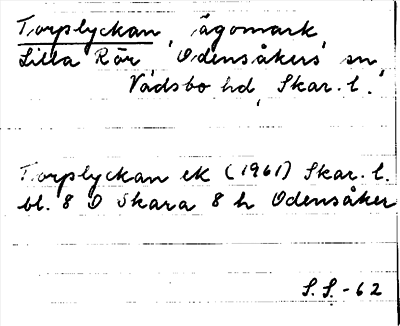 Torplyckan, ägomark,
Lilla Rör, Odensåkers sn,
Vadsbo hd, Skar. l.
Torplyckan ek (1961) Skar. l.
bl. 8 D Skara 8 h Odensåker
S.S. -62